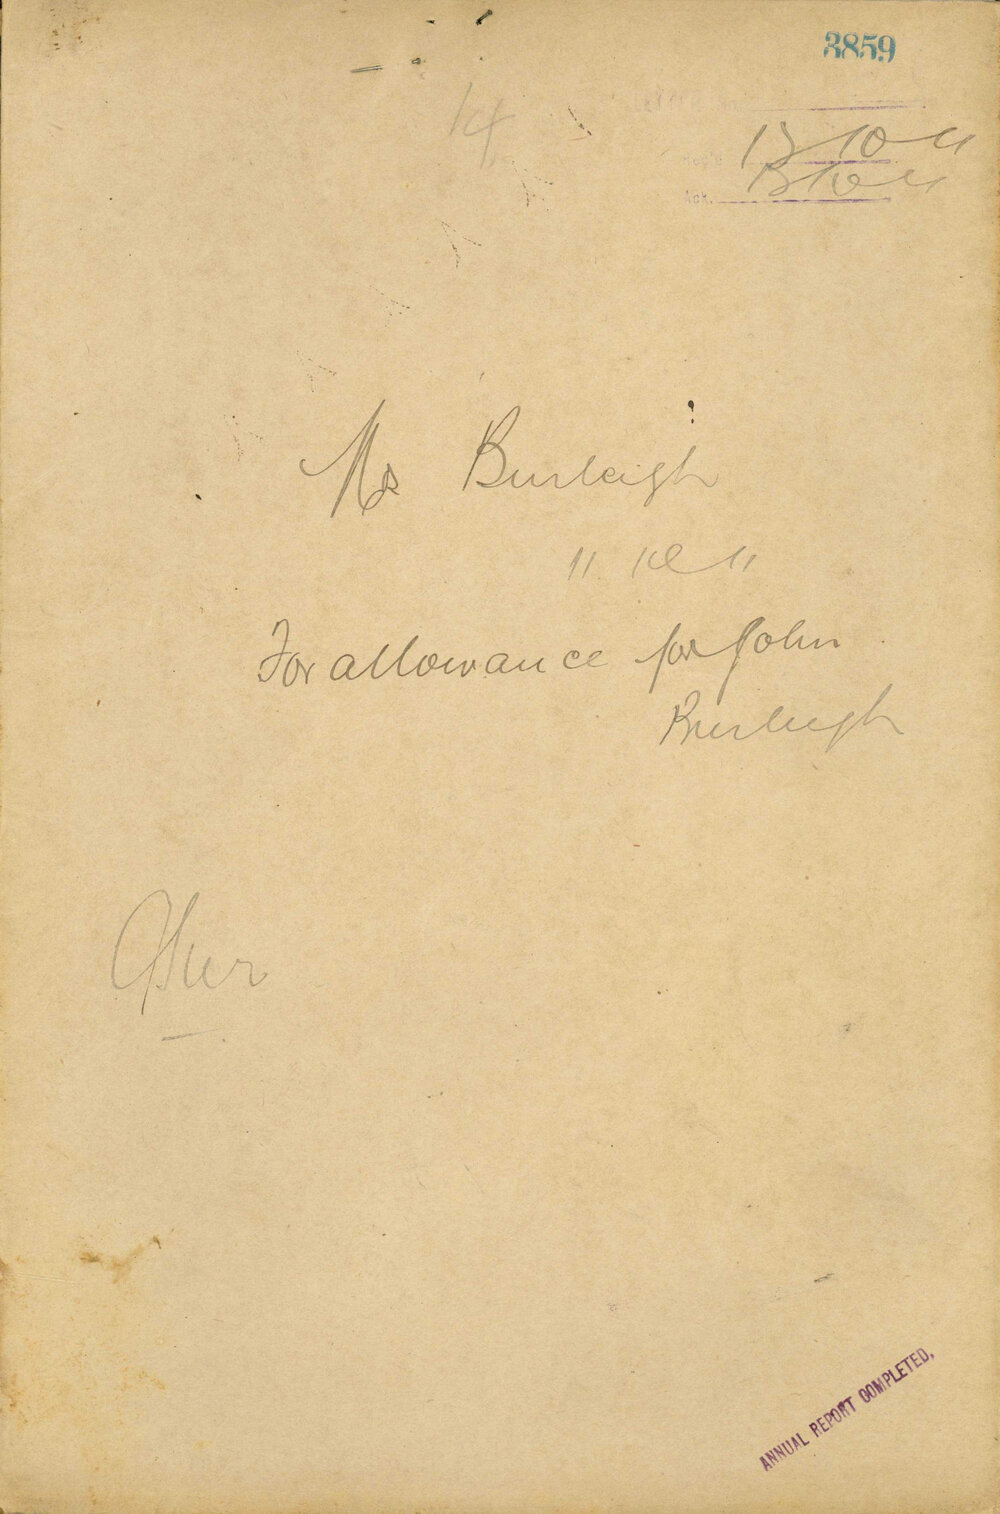 3859
14
Rec'd 13 10 11
Ack. 13 10 11
Mrs Burleigh
11 10 11
For allowance for John
Burleigh
ANNUAL REPORT COMPLETED.